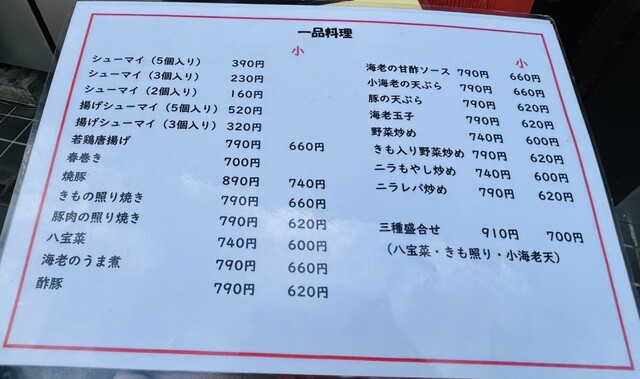 一品料理
小
シューマイ（5個入り） 390円
シューマイ（3個入り） 230円
シューマイ（2個入り） 160円
揚げシューマイ（5個入り） 520円
揚げシューマイ（3個入り） 320円
若鶏唐揚げ 790円 660円
春巻き 700円
焼豚 890円 740円
きもの照り焼き 790円 660円
豚肉の照り焼き 790円 620円
八宝菜 740円 600円
海老のうま煮 790円 660円
酢豚 790円 620円
小
海老の甘酢ソース 790円 660円
小海老の天ぷら 790円 660円
豚の天ぷら 790円 620円
海老玉子 790円 620円
野菜炒め 740円 600円
きも入り野菜炒め 790円 620円
ニラもやし炒め 740円 600円
ニラレバ炒め 790円 620円
三種盛合せ 910円 700円
（八宝菜・きも照り・小海老天）